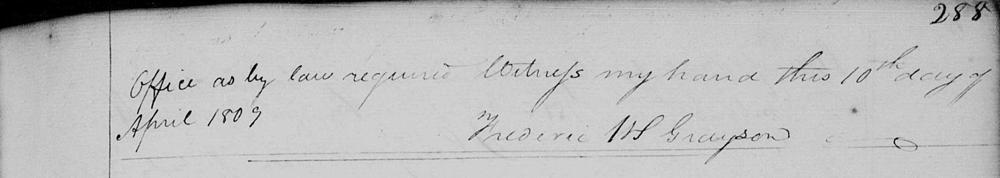 288
Office as by law required Witness my hand this 10th day of
April 1809
Frederic W S Grayson